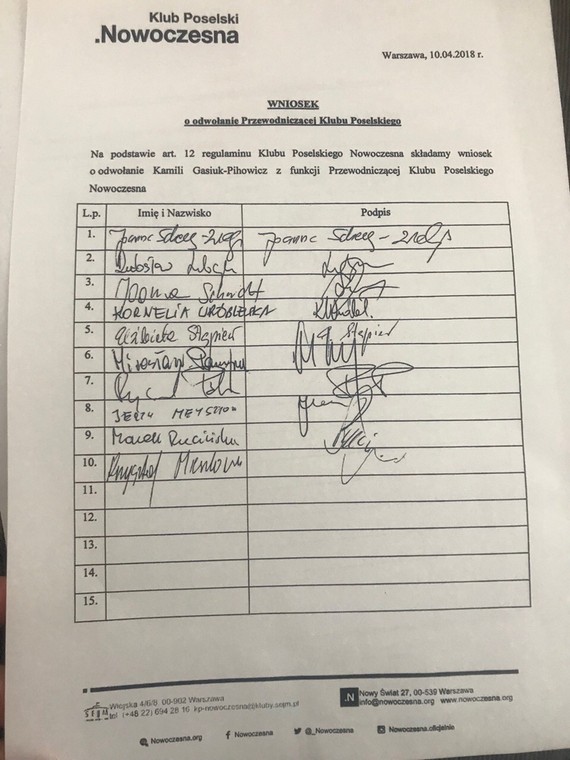 Klub Poselski
.Nowoczesna
Warszawa, 10.04.2018 r.
WNIOSEK
o odwołanie Przewodniczącej Klubu Poselskiego
Na podstawie art. 12 regulaminu Klubu Poselskiego Nowoczesna składamy wniosek
o odwołanie Kamili Gasiuk-Pihowicz z funkcji Przewodniczącej Klubu Poselskiego
Nowoczesna
L.p. Imię i Nazwisko Podpis
1.
2.
3. Joanna Schmidt
4. KORNELIA WRÓBLEWSKA
5. Elżbieta Stępień Stępień
6. Mirosław
7.
8. JERZY MEYSZTOWICZ
9. Marek Ruciński
10. Krzysztof
11.
12.
13.
14.
15.
SEJM
Wiejska 4/6/8, 00-902 Warszawa
tel (+48 22) 694 28 16 kp-nowoczesna@kluby.sejm.pl
.N
Nowy Świat 27, 00-539 Warszawa
info@nowoczesna.org www.nowoczesna.org
Nowoczesna.org f Nowoczesna @_Nowoczesna Nowoczesna.oficjalnie